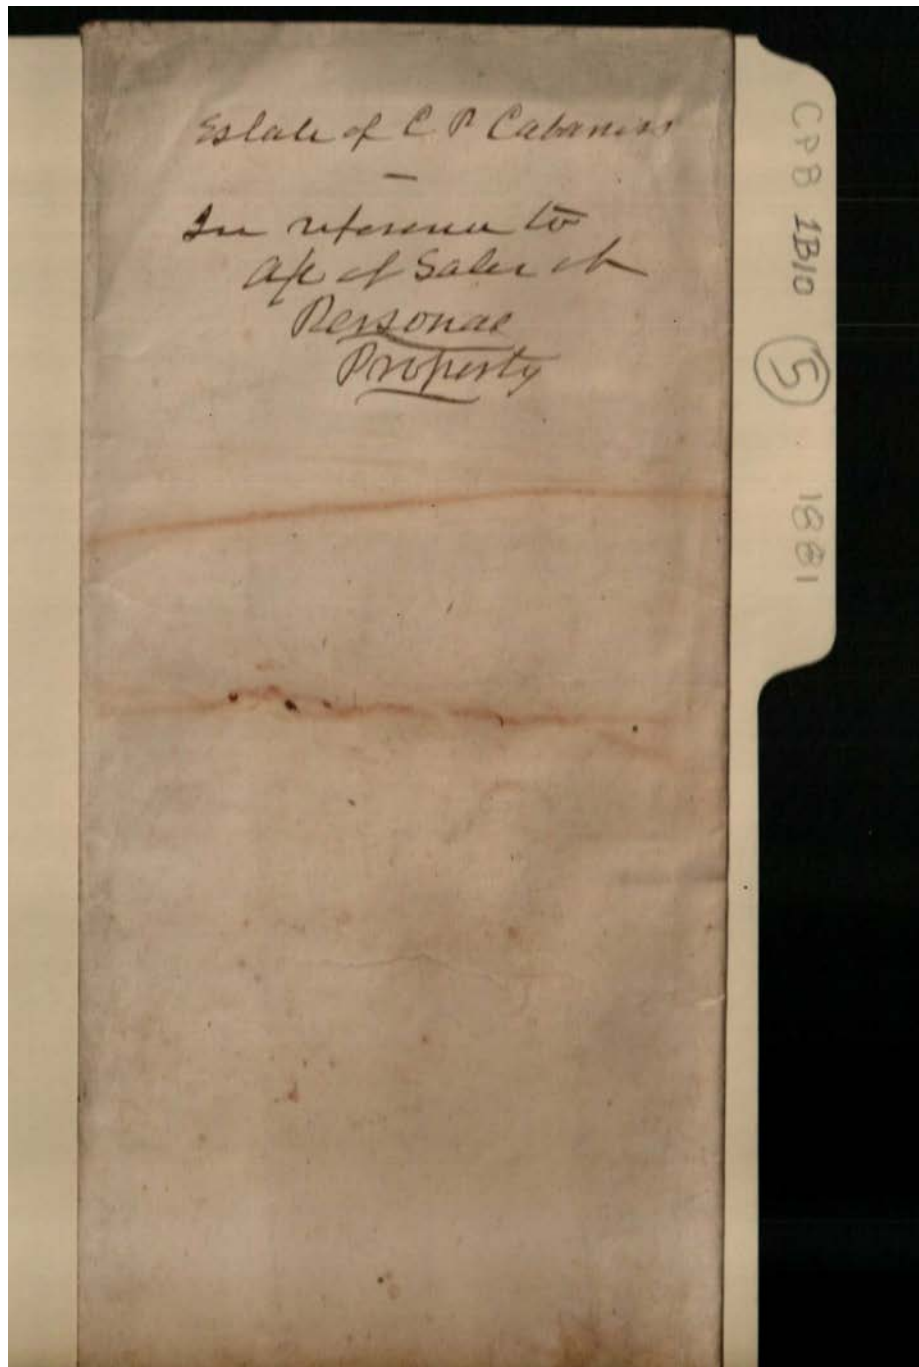 Estate of C P Cabaniss
—
In reference to
a/c of Sales of
Personal
Property
CPB 1B10 (5) 1881